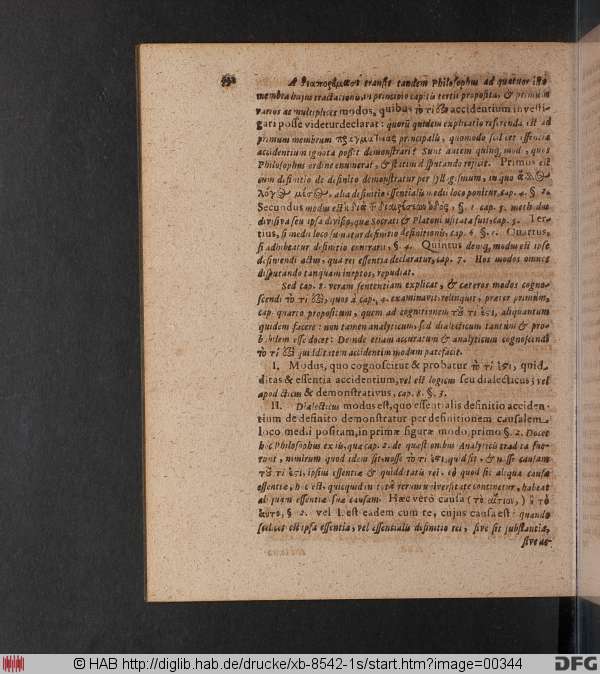 332
transit tandem Philosophus ad quatuor isto
membra hujus tractationis in principio capitis tertii proposita, & primùm
varios ac multiplices modos, quibus τὸ τί ὅτι accidentium investi-
gari posse videtur declarat: quorū quidem explicatio referenda est ad
primum membrum πραγματείας principalis, quomodo scilicet essentia
accidentium ignota possit demonstrari. Sunt autem quinq; modi, quos
Philosophus ordine enumerat, & statim disputando rejicit. Primus est
cum definitio de definito demonstratur per syllogismum, in quo
λόγος μέσος, alia definitio essentialis medii loco ponitur, cap. 4. §.
Secundus modus est, §. 1. cap. 5. methodus
divisiva seu ipsa divisio, quæ Socrati & Platoni usitata fuit, cap. 5. Ter-
tius, si medii loco sumatur definitio definitionis, cap. 6. §. 1. Quartus,
si adhibeatur definitio contrarii, §. 4. Quintus deniq; modus est ipse
definiendi actus, qua rei essentia declaratur, cap. 7. Hos modos omnes
disputando tanquam ineptos, repudiat.
Sed cap. 8. veram sententiam explicat, & cæteros modos cogno-
scendi τὸ τί quos à cap. 4. examinavit, relinquit, præter primum,
cap. quarto propositum, quem ad cognitionem τοῦ τί ἐστι, aliquantum
quidem facere: non tamen analyticum, sed dialecticum tantùm & pro-
babilem esse docet: Deinde etiam accuratum & analyticum cognoscendi
τὸ τί quidditatem accidentium modum patefacit.
I. Modus, quo cognoscitur & probatur τὸ τί ἐστι, quid-
ditas & essentia accidentium, vel est logicus seu dialecticus; vel
apodicticus & demonstrativus, cap. 8. §. 3.
II. Dialecticus modus est, quo essentialis definitio acciden-
tium de definito demonstratur per definitionem causalem
loco medii positam, in primæ figuræ modo primo §. 2. Docet
hîc Philosophus ex iis, quæ cap. 2. de quæstionibus Analyticis tradita fue-
runt, nimirum quod idem sit, nosse τὸ τί ἐστι, quid sit, & nosse causam
τοῦ τί ἐστι, ipsius essentiæ & quidditatis rei: eò quod sit aliqua causa
essentiæ, h.c est, quicquid in tota rerum universitate continetur, habeat
aliquam essentiæ suæ causam. Hæc verò causa (τὸ αἴτιον,) ἢ τὸ
αὐτὸ, §. 2. vel I. est eadem cum re, cujus causa est: quando
scilicet est ipsa essentia, vel essentialis definitio rei, sive sit substantiæ,
sive ac-
© HAB http://diglib.hab.de/drucke/xb-8542-1s/start.htm?image=00344
DFG